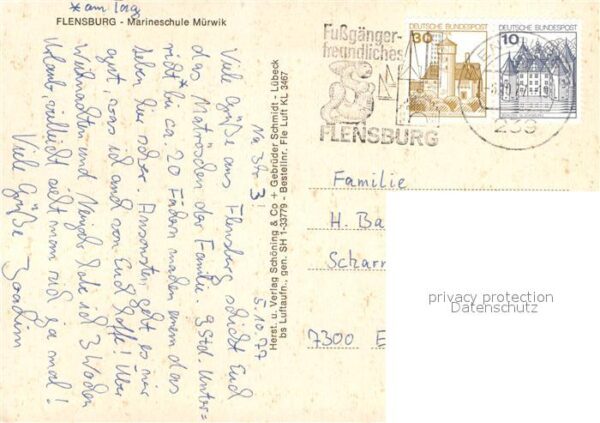 *am Tag
FLENSBURG - Marineschule Mürwik
Na 3tr 3!
5.10.77
Viele Grüße aus Flensburg schickt Euch
das Matrösden der Familie. 9 Std. Unter-
richt* bei ca. 20 Fächern machen einem das
Leben hier schwer. Ansonsten geht es mir
gut, was ich auch von Euch hoffe! Über
Weihnachten und Neujahr habe ich 3 Wochen
Urlaub, vielleicht sieht man sich ja mal!
Viele Grüße Joachim
Herst. u. Verlag Schöning & Co + Gebrüder Schmidt - Lübeck
bs Luftaufn., gen. SH 1-33779 - Bestellnr. Fle Luft KL 3467
Fußgänger-
freundliches
FLENSBURG
30
DEUTSCHE BUNDESPOST
10
DEUTSCHE BUNDESPOST
239
Familie
H. Ba
Scharn
7300 E
privacy protection
Datenschutz